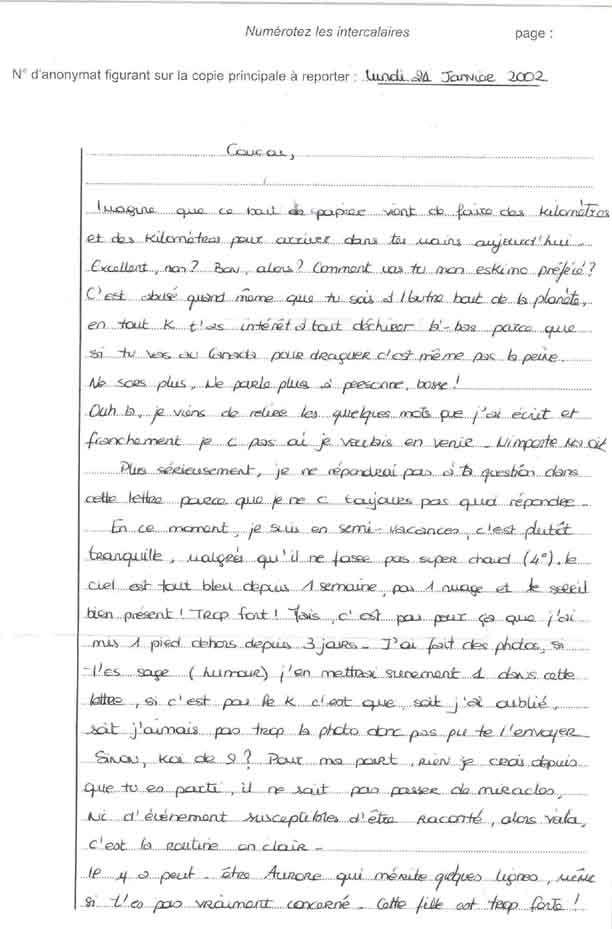 Numérotez les intercalaires page :
N° d'anonymat figurant sur la copie principale à reporter : lundi 21 Janvier 2002
Coucou,
Imagine que ce bout de papier vient de faire des kilomètres
et des kilomètres pour arriver dans tes mains aujourd'hui.
Excellent, non? Bon, alors? Comment vas tu mon eskimo préféré?
C'est abusé quand même que tu sois à l'autre bout de la planète,
en tout K t'as intérêt à tout déchirer là-bas parce que
si tu vas au Canada pour draguer c'est même pas la peine.
Ne sors plus, Ne parle plus à personne, bosse!
Ouh la, je viens de relire les quelques mots que j'ai écrit et
franchement je c pas où je voulais en venir - N'importe koi
Plus sérieusement, je ne répondrai pas à ta question dans
cette lettre parce que je ne c toujours pas quoi répondre -
En ce moment, je suis en semi-vacances, c'est plutôt
tranquille, malgrés qu'il ne fasse pas super chaud (4°). le
ciel est tout bleu depuis 1 semaine, pas 1 nuage et le soleil
bien présent! Trop fort! Mais, c'est pas pour ça que j'ai
mis 1 pied dehors depuis 3 jours - J'ai fait des photos, si
t'es sage (humour) j'en mettrai surement 1 dans cette
lettre, si c'est pas le k c'est que, soit j'ai oublié,
soit j'aimais pas trop la photo donc pas pu te l'envoyer
Sinon, Koi de 9? Pour ma part, rien je crois depuis
que tu es parti, il ne sait pas passer de miracles,
Ni d'événement susceptibles d'être raconté, alors voila,
c'est la routine en clair -
Il y a peut-être Aurore qui mérite quelques lignes, même
si t'es pas vraiment concerné - Cette fille est trop forte!